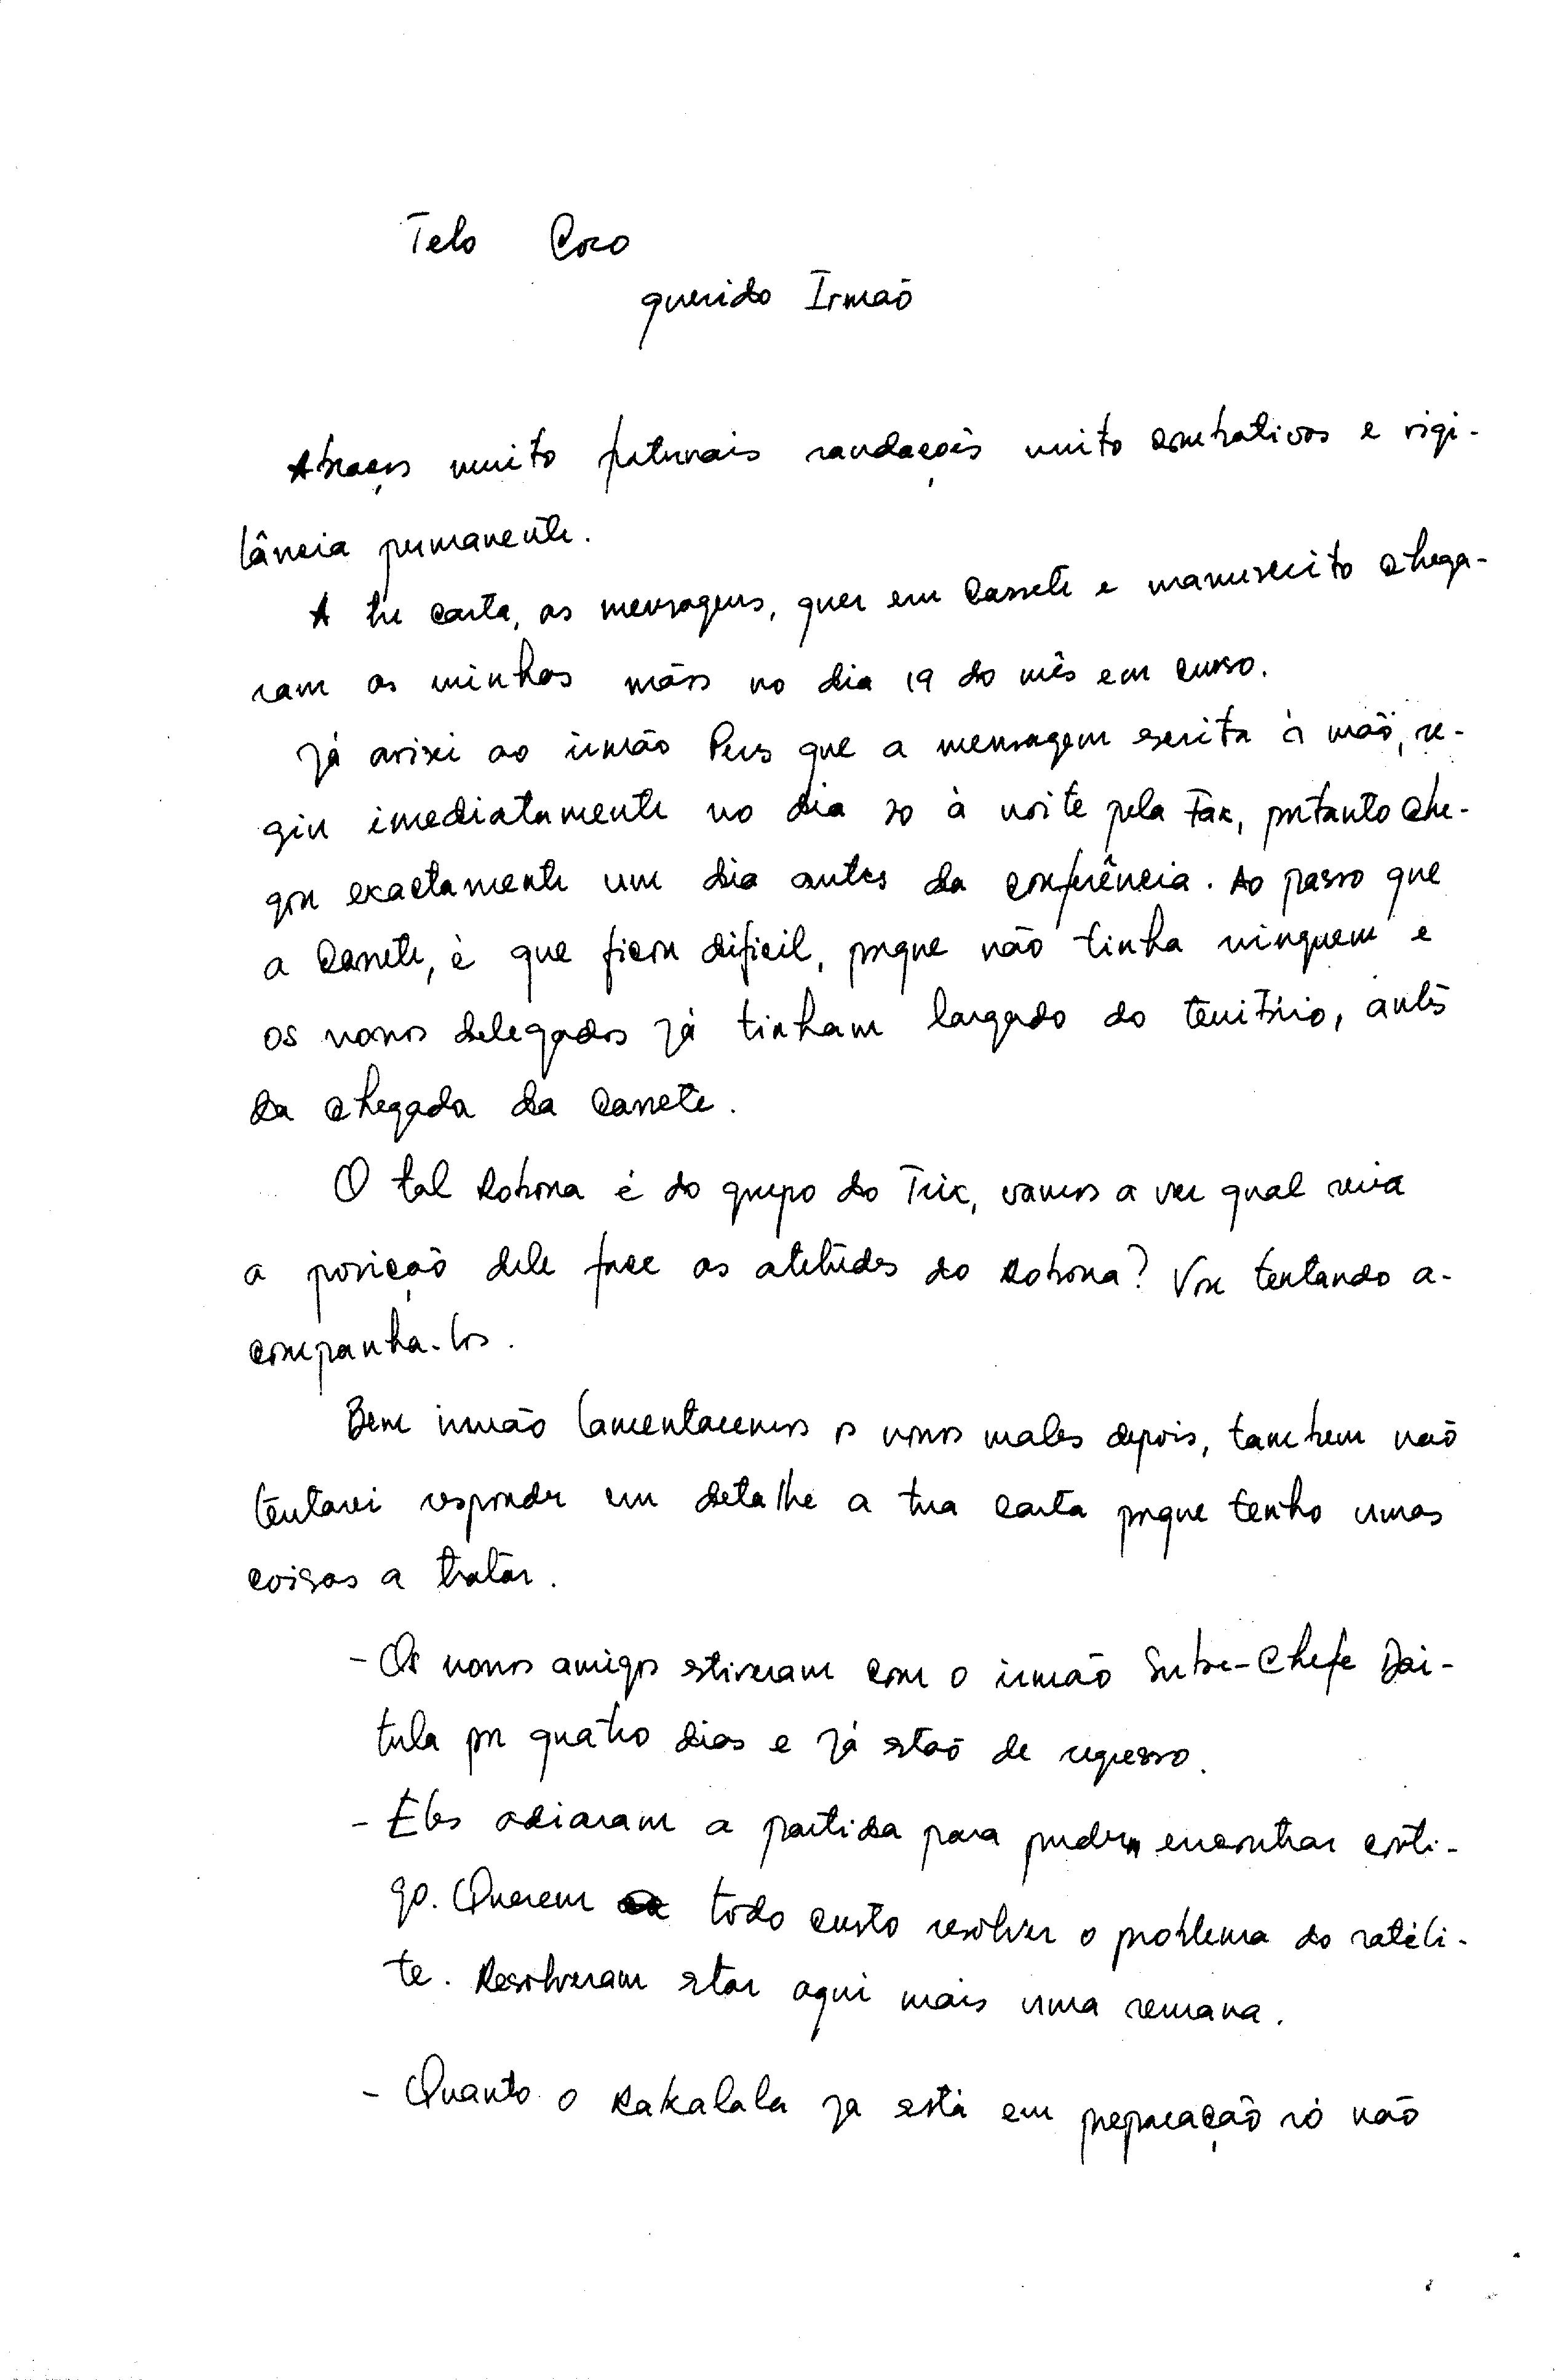 Telo Coco
querido Irmaõ
Abraços muito fraternais saudaçoẽs muito combativas e vigi-
lância permanente.
A tu carta, as mensagens, quer em Cassete e manuscrito chega-
ram as minhas mãos no dia 19 do mês em curso.
Já avisei ao irmão que a mensagem escrita à maõ, se-
giu imediatamente no dia 20 à noite pela Fax, portanto che-
gou exactamente um dia antes da conferência. Ao passo que
a Cassete, è que ficou dificil, porque não tinha ninguem e
os nossos delegados já tinham largado do território, antes
da chegada da Cassete.
O tal Robona é do grupo do Trix, vamos a ver qual seria
a posiçaõ dele face as atetudes do Robona? Vou tentando a-
companha-los.
Bem irmão lamentaremos os nossos males depois, tambem naõ
tentarei responder em detalhe a tua carta porque tenho umas
coisas a tratar.
- Os nossos amigos estiveram com o irmão Sub-Chefe Dai-
tula por quatro dias e já estaõ de regresso.
- Eles adiaram a partida para puderem encontrar conti-
go. Querem todo custo resolver o problema do satéli-
te. Resolveram estar aqui mais uma semana.
- Quanto o Kakalala ja está em preparaçaõ só não